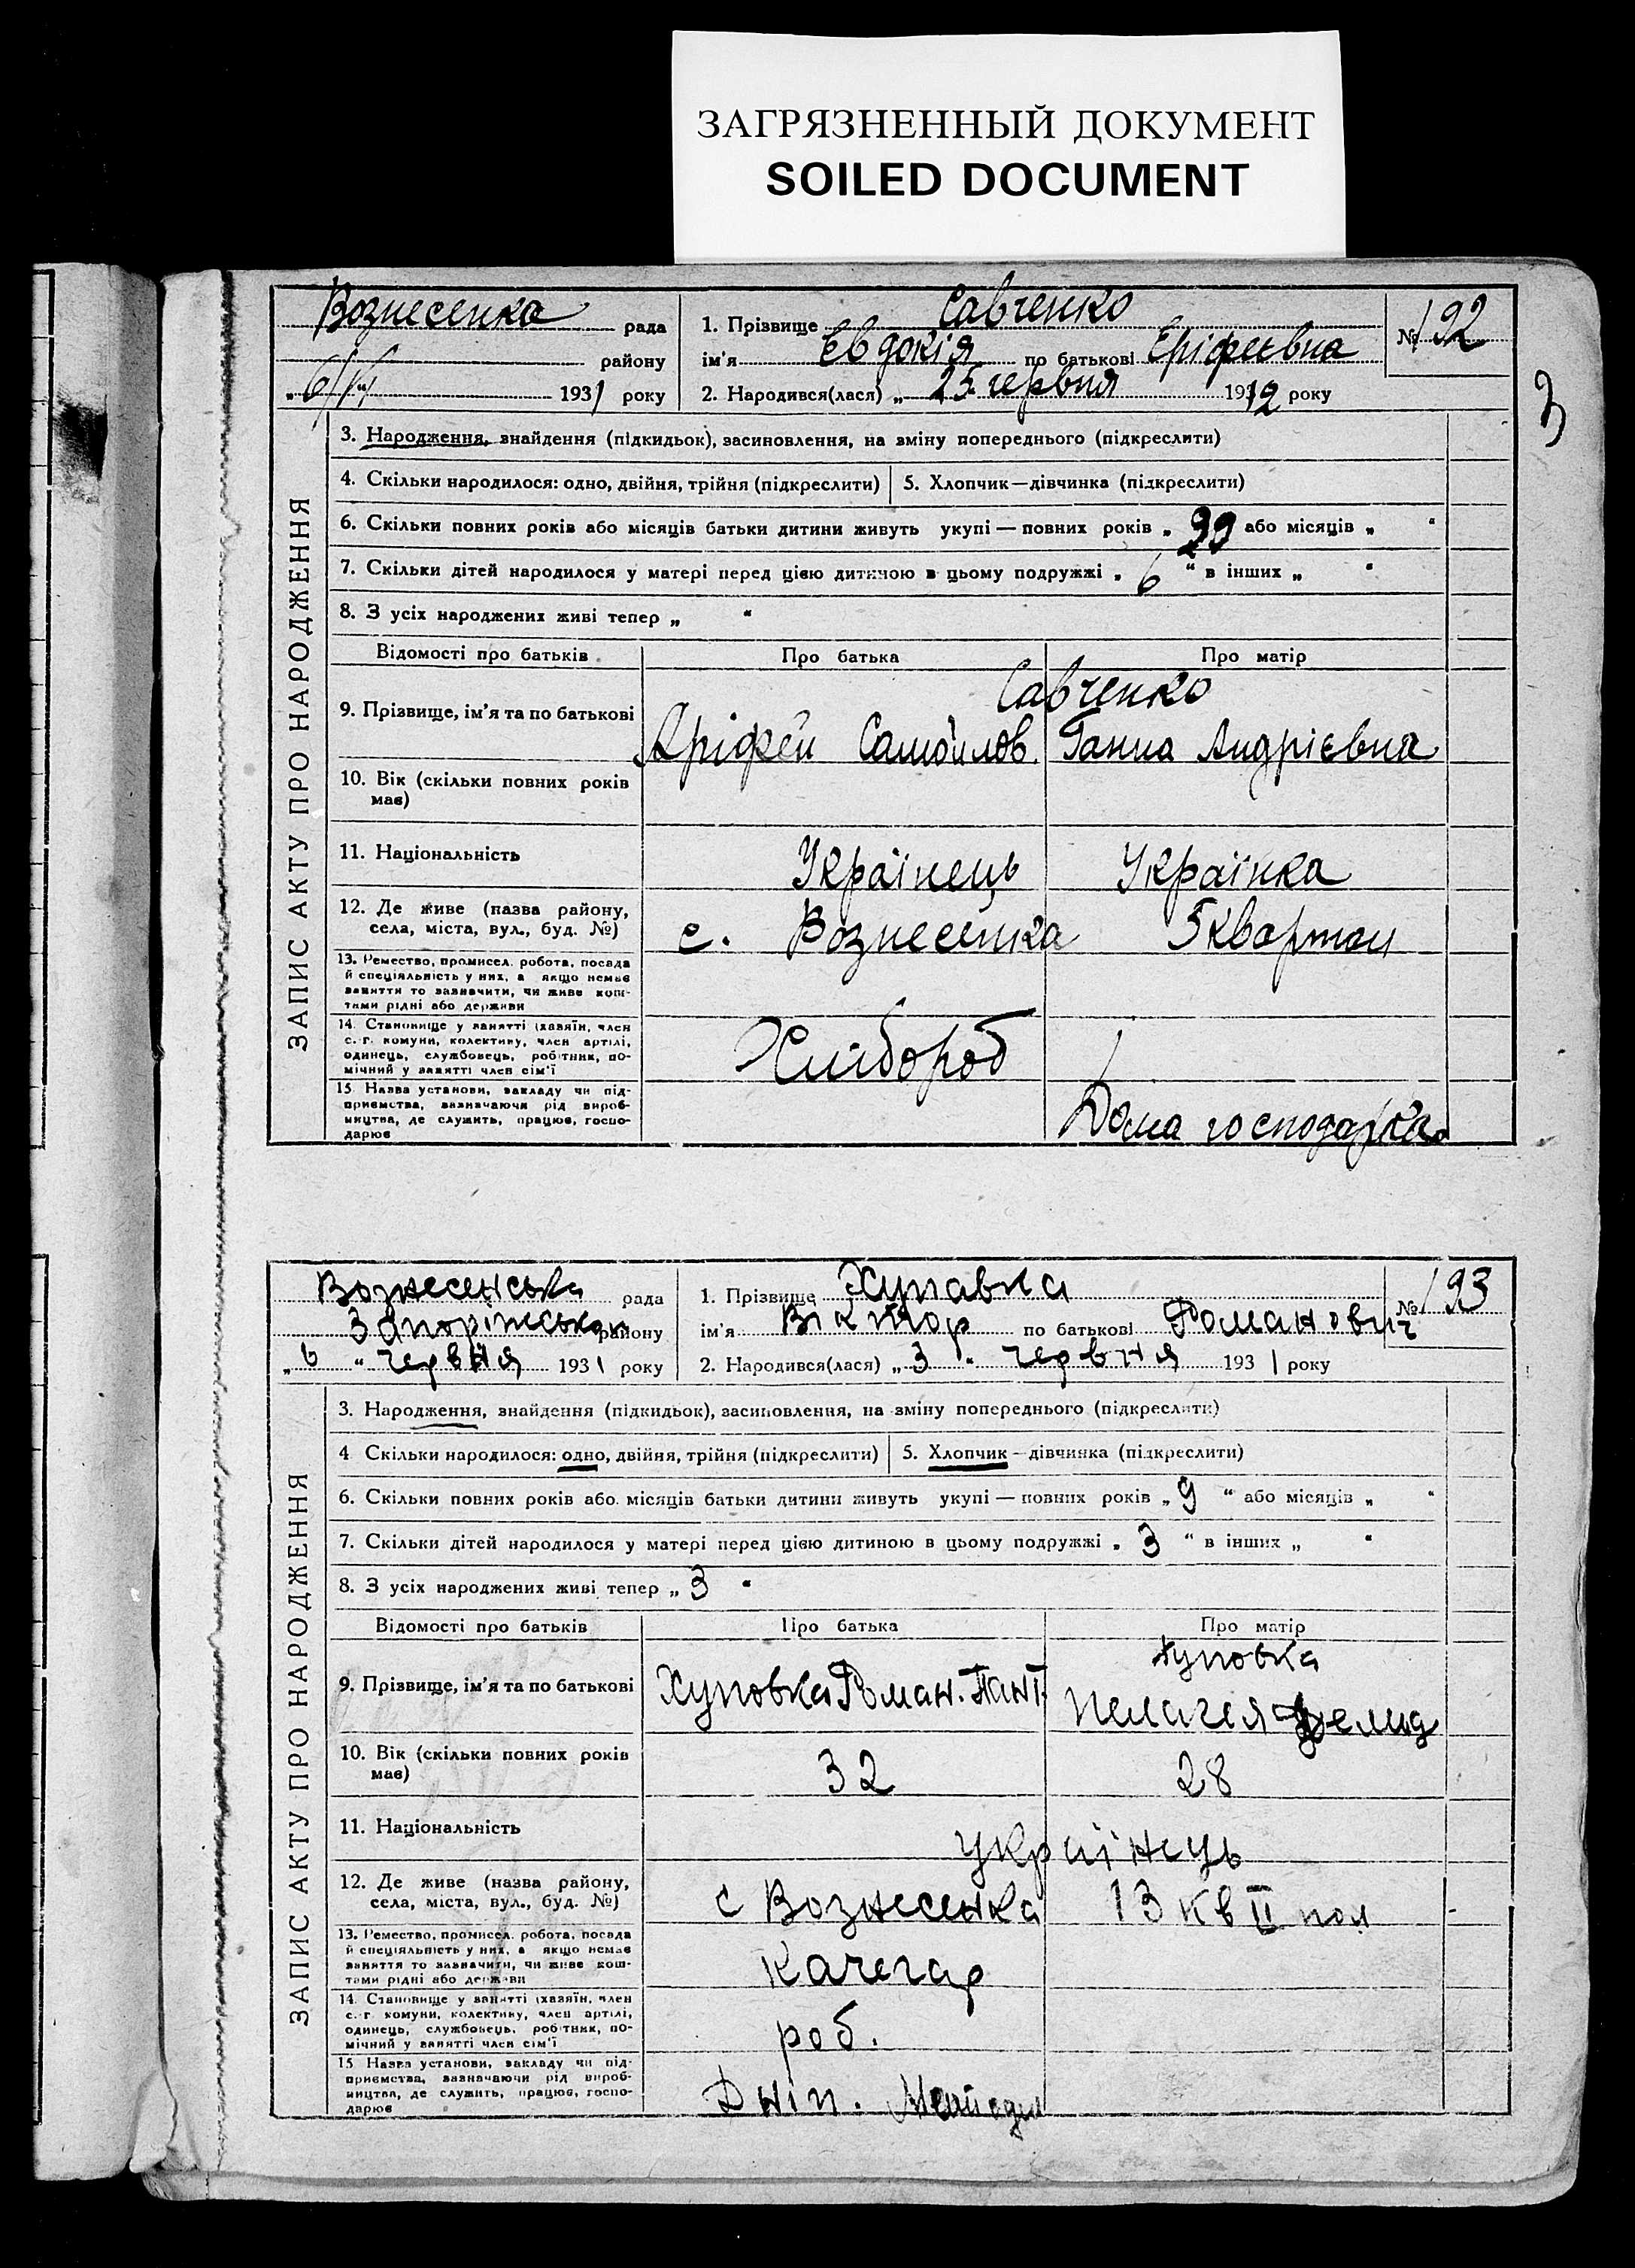 ЗАГРЯЗНЕННЫЙ ДОКУМЕНТ
SOILED DOCUMENT
3
ЗАПИС АКТУ ПРО НАРОДЖЕННЯ
Вознесенка рада
району
„6/VI 1931 року
1. Прізвище Савченко
ім'я Євдокія по батькові Єріфеєвна
2. Народився(лася) „25 червня 1912 року
№ 192
3. Народження, знайдення (підкидьок), засиновлення, на зміну попереднього (підкреслити)
4. Скільки народилося: одно, двійня, трійня (підкреслити) 5. Хлопчик—дівчинка (підкреслити)
6. Скільки повних років або місяців батьки дитини живуть укупі — повних років „ 39 або місяців „ “
7. Скільки дітей народилося у матері перед цією дитиною в цьому подружжі „ 6 “ в інших „ “
8. З усіх народжених живі тепер „ “
Відомості про батьків Про батька Про матір
Савченко
9. Прізвище, ім'я та по батькові Аріфей Самойлов. Ганна Андрієвна
10. Вік (скільки повних років
має)
11. Національність Українець Українка
12. Де живе (назва району,
села, міста, вул., буд. №) с. Вознесенка 5 квартал
13. Ремество, промисел, робота, посада
й спеціяльність у них, а якщо немає
заняття то зазначити, чи живе кош-
тами рідні або держави
14. Становище у занятті (хазяїн, член
с.-г. комуни, колективу, член артілі,
одинець, службовець, робітник, по-
мічний у занятті член сім'ї
Хлібороб
15. Назва установи, закладу чи під-
приємства, зазначаючи рід вироб-
ництва, де служить, працює, госпо-
дарює
Дома господарка
ЗАПИС АКТУ ПРО НАРОДЖЕННЯ
Вознесенська рада
Запоріжськой району
„ 6 “ червня 1931 року
1. Прізвище Хупавка
ім'я Віктор по батькові Романович
2. Народився(лася) „ 3 “ червня 1931 року
№ 193
3. Народження, знайдення (підкидьок), засиновлення, на зміну попереднього (підкреслити)
4 Скільки народилося: одно, двійня, трійня (підкреслити) 5. Хлопчик—дівчинка (підкреслити)
6. Скільки повних років або місяців батьки дитини живуть укупі — повних років „ 9 “ або місяців „ “
7. Скільки дітей народилося у матері перед цією дитиною в цьому подружжі „ 3 “ в інших „ “
8. З усіх народжених живі тепер „ 3 “
Відомості про батьків Про батька Про матір
Хуповка
9. Прізвище, ім'я та по батькові Хуповка Роман. Пант. Пелагея
10. Вік (скільки повних років
має) 32 28
11. Національність українець
12. Де живе (назва району,
села, міста, вул., буд. №) с Вознесенка 13 кв II пол
13. Ремество, промисел, робота, посада
й спеціяльність у них, а якщо немає
заняття то зазначити, чи живе кош-
тами рідні або держави
Качегар
14. Становище у занятті (хазяїн, член
с.-г. комуни, колективу, член артілі,
одинець, службовець, робітник, по-
мічний у занятті член сім'ї
роб.
15. Назва установи, закладу чи під-
приємства, зазначаючи рід вироб-
ництва, де служить, працює, госпо-
дарює
Дніп.